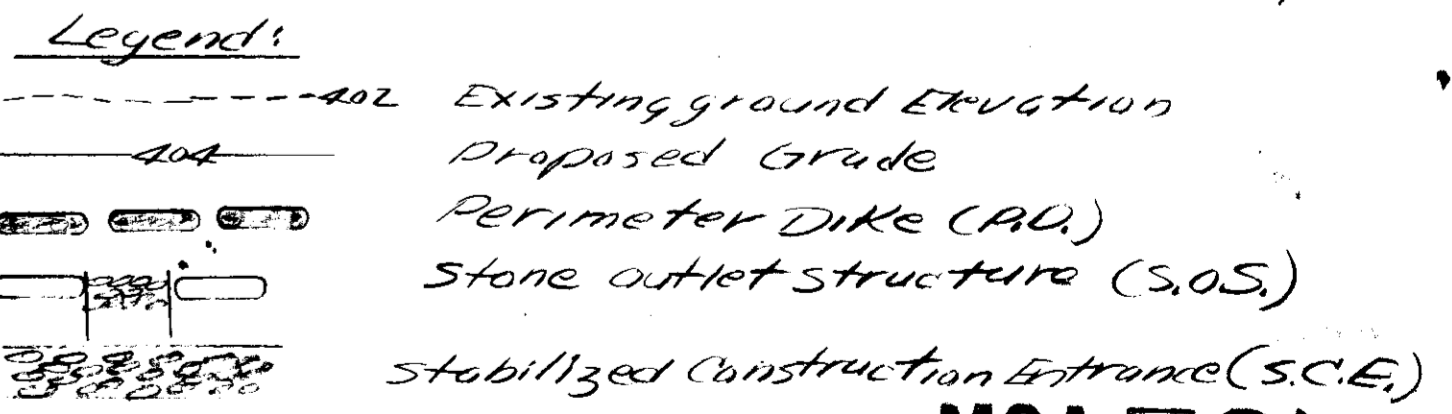 Legend:
402 Existing ground Elevation
404 Proposed Grade
Perimeter Dike (P.D.)
Stone outlet structure (S.O.S.)
Stabilized Construction Entrance (S.C.E.)